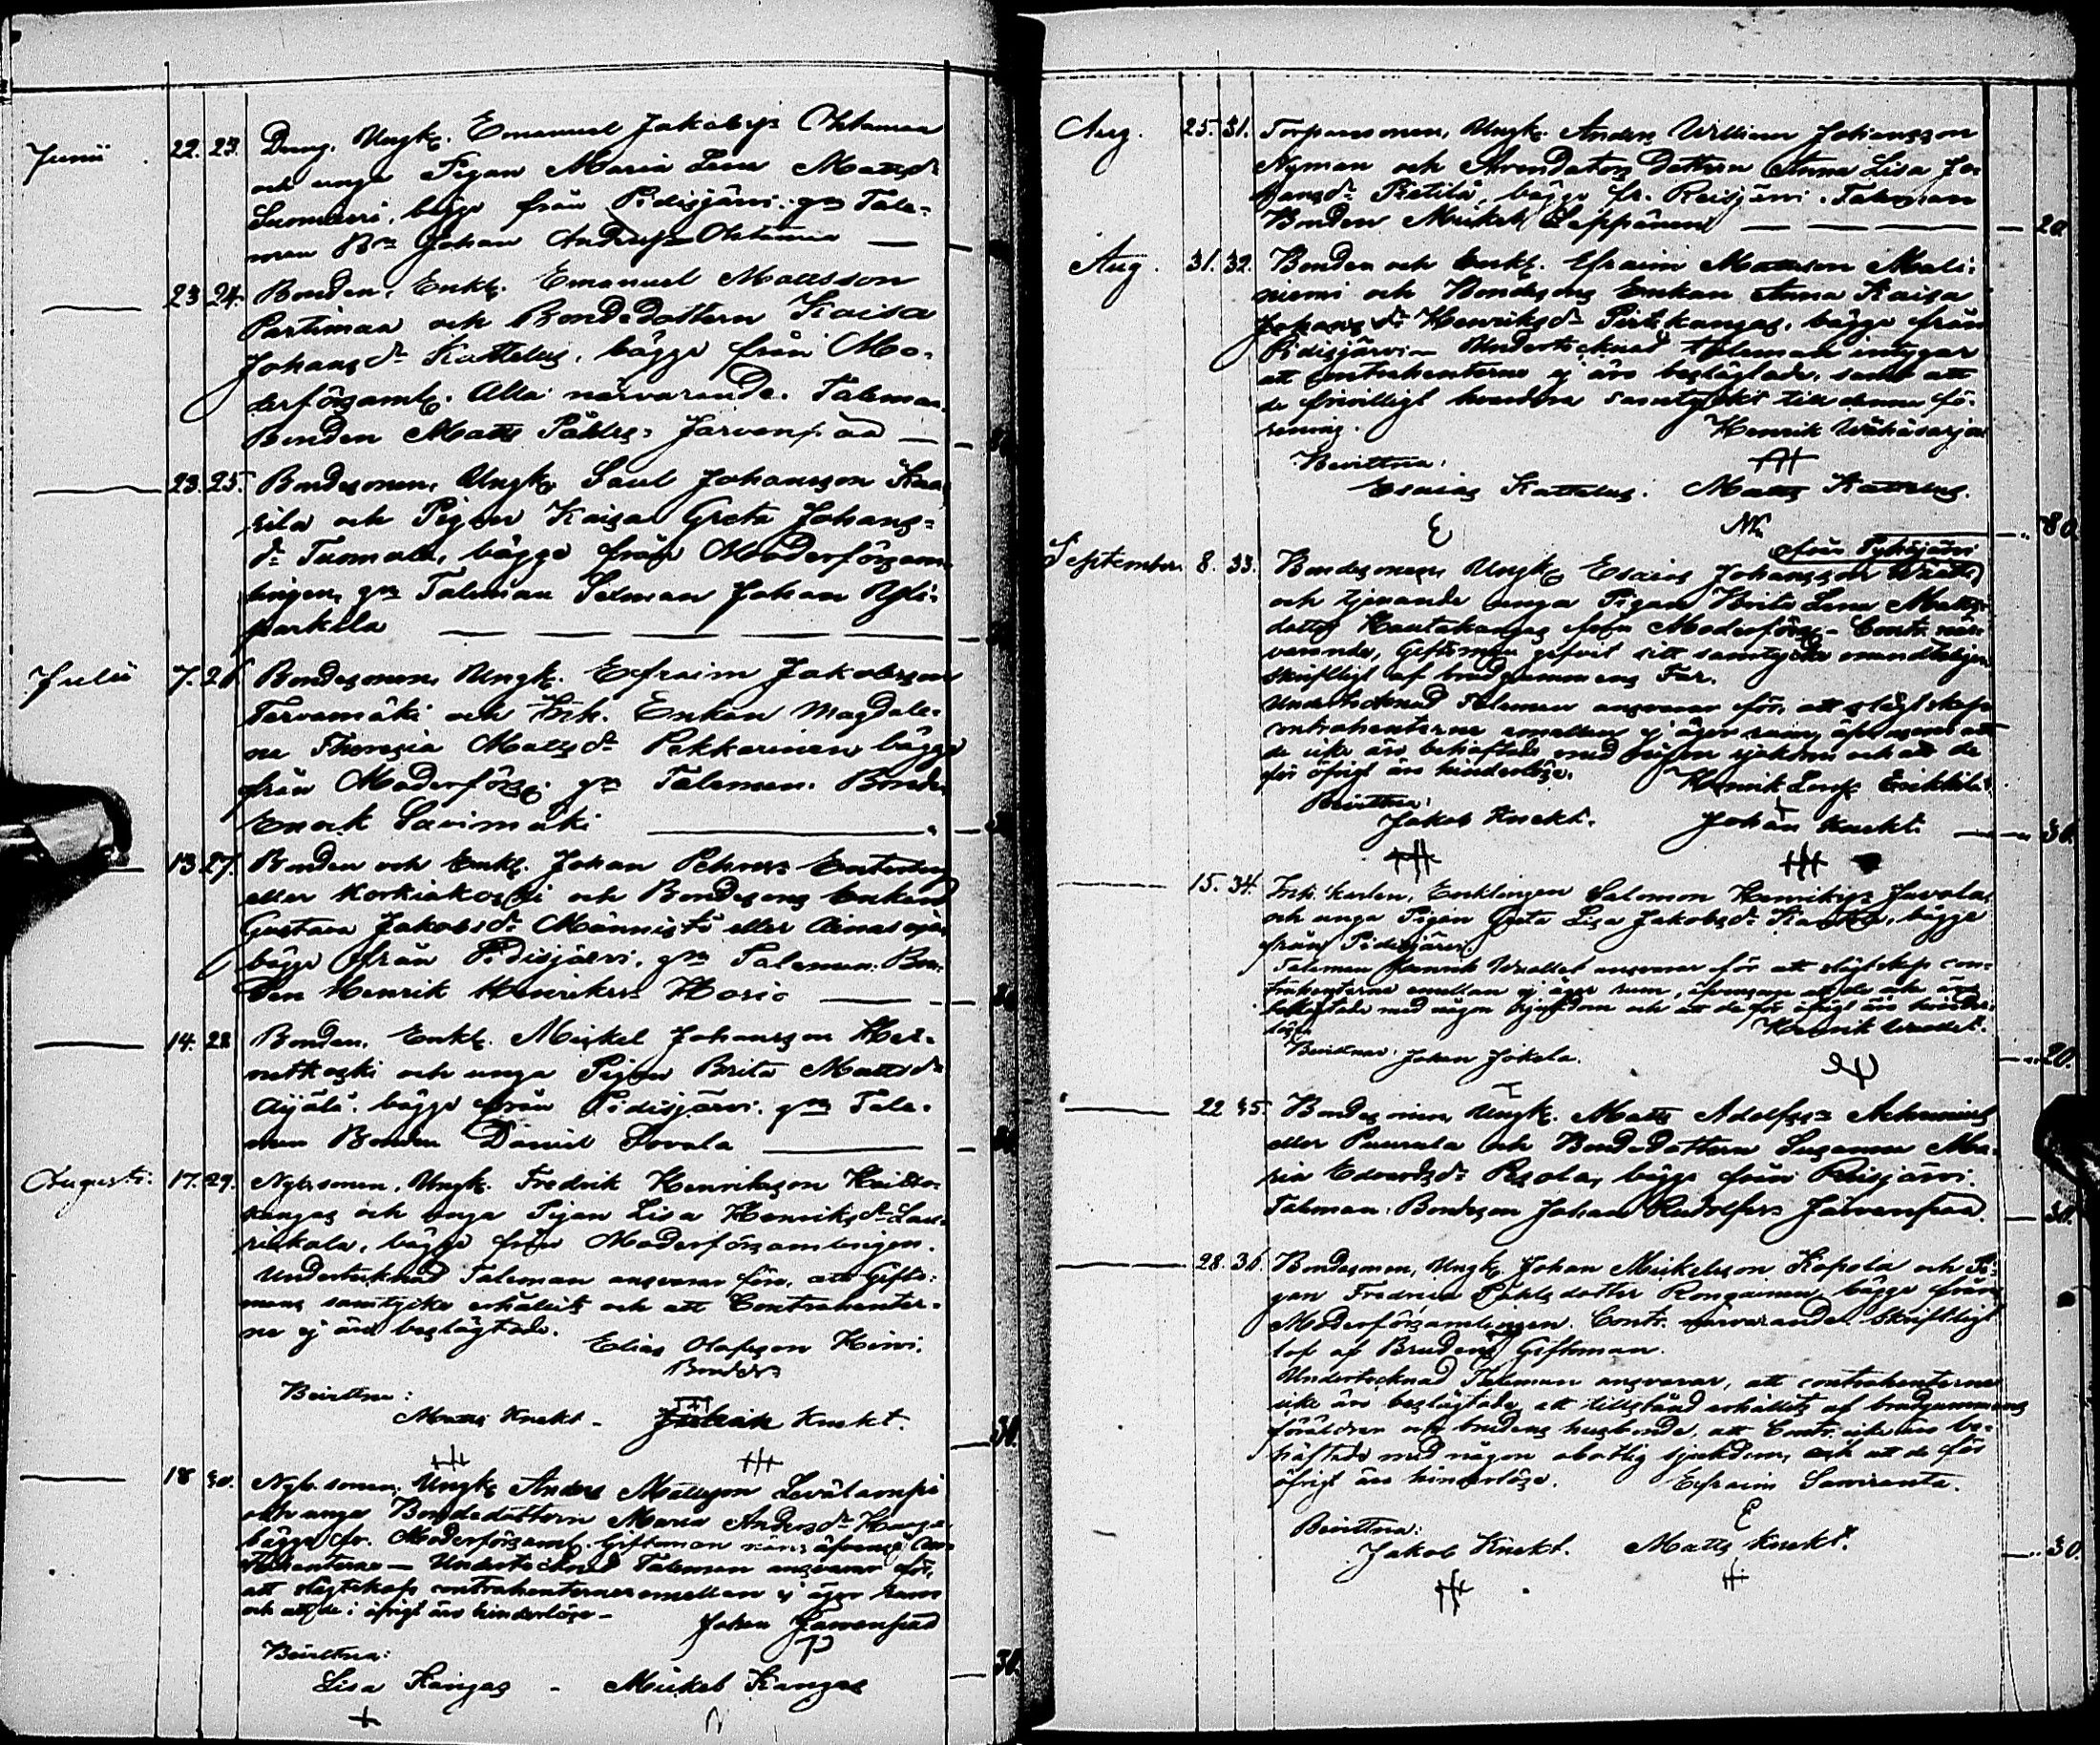 Junii 22. 23. Dräng. Ungk. Emanuel Jakobss Ohtamaa
och unga Pigan Maria Lena Mattsdr
Suomäri, bägge från Pidisjärvi. gm Tale-
man Bn Johan Andrss Ohtamaa —
— 23 24. Bonden, Enkl. Emanuel Mattsson
Partimaa och Bondedottern Kaisa
Johansdr Kattelus, bägge från Mo-
derförsaml. Alla närvarande. Taleman
Bonden Matts Påhlss Järvenpää —
— 23. 25. Bondesonen, Ungk. Saul Johansson
och Pigan Kaisa Greta Johans-
dr Tuomala, bägge från Moderförsam-
lingen, gm Taleman Johan Yli-
parkila —
Julii 7. 26 Bondesonen Ungk. Efraim Jakobsson
Tervamäki och Enkan Magdale-
na Theresia Mattsdr Pekkarinen bägge
från Moderförs. gm Taleman Bonden
Enock Savimäki —
— 13 27. Bonden och Enkl. Johan Pehrss
eller Korkiakoski och Bondesons Enkan
Gustava Jakobsdr Männistö eller Ainasoja
bägge från Pidisjärvi, gm Taleman: Bon-
den Henrik Henrikss —
— 14. 28 Bonden, Enkl. Mickel Johansson Hei-
netkoski och unga Pigan Brita Mattsdr
Äijälä, bägge från Pidisjärvi. gm Tale-
man Bonden Daniel —
Augusti. 17. 29. Nyb.sonen, Ungk. Fredrik Henriksson
kangas och unga Pigan Lisa Henriksdr
bägge från Moderförsamlingen.
Undertecknad Taleman ansvarar före, att Gifto-
mans samtycke erhållits och att Contrahenter-
ne ej äro beslägtade.
Elias Olofsson
Bonde
Bevittna:
Matts Knekt - Knekt.
30.
— 18 30. Nyb.sonen, Ungk. Anders Mattsson Levälampi
och unga Bondedottern Maria Andersdr
bägge fr. Moderförsaml. Giftoman
— Undertecknad Taleman ansvarar för,
att slägtskap contrahenterne emellan ej äger rum
och att de i öfrigt äro hinderlöse -
Johan Järvenpää
Bevittna:
30.
Lisa Kangas - Mickel Kangas
Aug. 25. 31. Torparesonen, Ungk. Anders William Johansson
Nyman och Arrendators Dottren Anna Lisa Jo-
hansdr Pietilä, bägge fr. Reisjärvi. Taleman
Bonden Mickel Leppänen — 20
Aug. 31. 32. Bonden och Enkl. Efraim Mattsson Mali-
niemi och Bondesons Enkan Anna Kaisa
Johansdr Henriksdr Pirttikangas, bägge från
Pidisjärvi - Undertecknad Taleman intygar
att contrahenterne ej äro beslägtade, samt att
de frivilligt samtyckt till denna fö-
rening.
Henrik Wähäsarja
Bevittna:
Esaias Kattelus. Matts Kattelus.
80
från Pyhäjärvi
September 8. 33. Bondesonen Ungk. Esaias Johansson
och tjenande unga Pigan Brita Lena Matts-
dotter Hautakangas från Moderförs. - Contr. när-
varande, Giftoman gifvit sitt samtycke
skriftligt af brudgummens Far.
Undertecknad Taleman ansvarar för, att slägtskap
contrahenterne emellan ej äger rum, äfvensom att
de icke äro behäftade med någon sjukdom och att de
för öfrigt äro hinderlöse.
Henrik Erikkilä
Bevittna:
Jakob Knekt. Johan Knekt. — 30.
— 15. 34. Enklingen Salomon Henrikss Javala
och unga Pigan Greta Lisa Jakobsdr bägge
från Pidisjärvi.
Taleman Henrik ansvarar för att slägtskap con-
trahenterne emellan ej äger rum, äfvensom att de icke äro
behäftade med någon sjukdom och att de för öfrigt äro hinder-
löse
Henrik
Bevittnar: Johan Jokela.
20.
— 22 35. Bondesonen, Ungk. Matts Adolfss
eller Puurula och Bondedottern Susanna Ma-
ria Edvardsdr bägge från Reisjärvi.
Taleman: Bondeson Johan Rudolfss Järvenpää. — 30.
— 28. 36. Bondesonen, Ungk. Johan Mickelsson Kopola och Pi-
gan Fredrica Påhlsdotter Rongainen bägge från
Moderförsamlingen. Contr. närvarande. Skriftligt
lof af Brudens Giftoman.
Undertecknad Taleman ansvarar, att contrahenterne
icke äro beslägtade, att tillstånd erhållits af brudgummens
föräldrar och brudens husbonde, att Contr. icke äro be-
häftade med någon obotlig sjukdom, och att de för
öfrigt äro hinderlöse.
Efraim Saviranta.
E
Bevittna:
Jakob Knekt. Matts Knekt.
30.